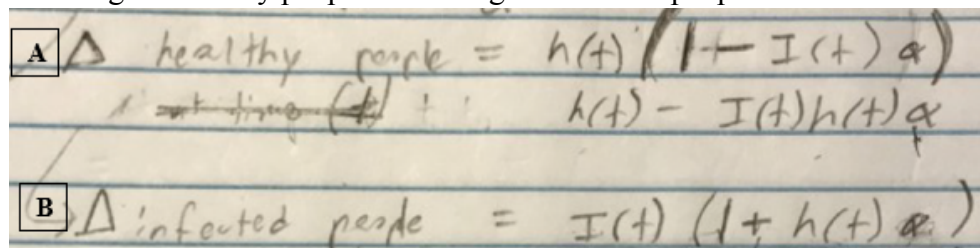 A Δ healthy people = h(t) (1 - I(t) α)
at time (t) h(t) - I(t)h(t)α
B Δ infected people = I(t) (1 + h(t) α)